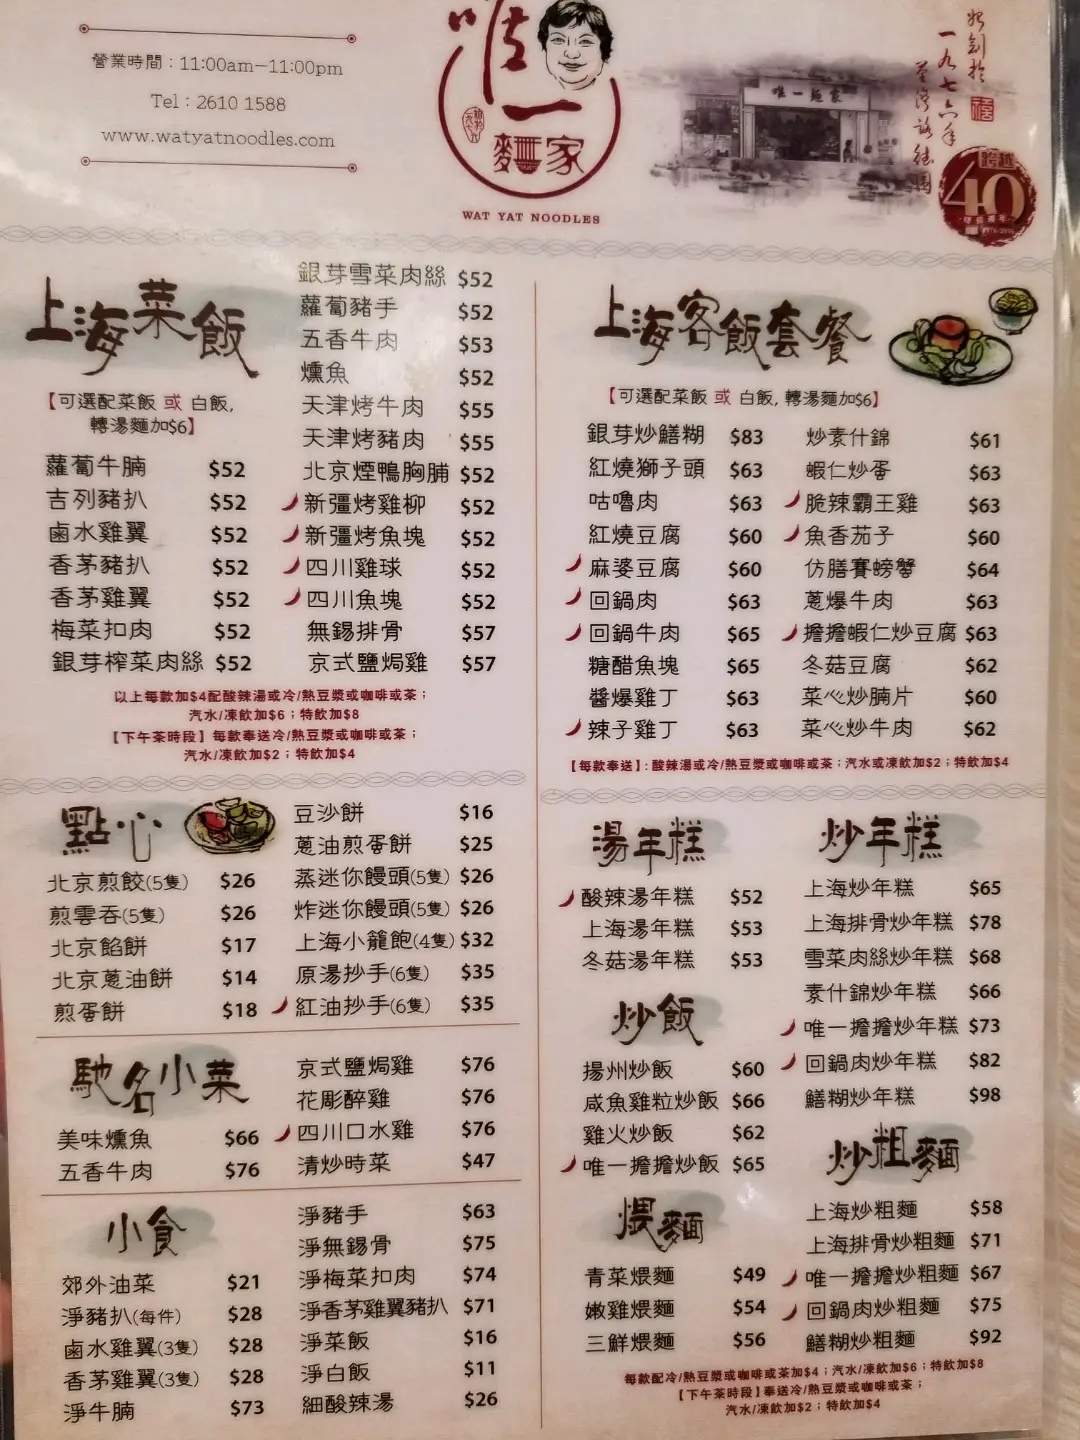 營業時間：11:00am—11:00pm
Tel : 2610 1588
www.watyatnoodles.com
唯一
麵家
WAT YAT NOODLES
唯一麵家
始創於
一九七六年
荃灣路德圍
跨越
40
上海菜飯
【可選配菜飯 或 白飯,
轉湯麵加$6】
蘿蔔牛腩 $52
吉列豬扒 $52
鹵水雞翼 $52
香茅豬扒 $52
香茅雞翼 $52
梅菜扣肉 $52
銀芽榨菜肉絲 $52
銀芽雪菜肉絲 $52
蘿蔔豬手 $52
五香牛肉 $53
燻魚 $52
天津烤牛肉 $55
天津烤豬肉 $55
北京煙鴨胸脯 $52
新疆烤雞柳 $52
新疆烤魚塊 $52
四川雞球 $52
四川魚塊 $52
無錫排骨 $57
京式鹽焗雞 $57
以上每款加$4配酸辣湯或冷/熱豆漿或咖啡或茶；
汽水/凍飲加$6；特飲加$8
【下午茶時段】每款奉送冷/熱豆漿或咖啡或茶；
汽水/凍飲加$2；特飲加$4
上海客飯套餐
【可選配菜飯 或 白飯, 轉湯麵加$6】
銀芽炒鱔糊 $83
紅燒獅子頭 $63
咕嚕肉 $63
紅燒豆腐 $60
麻婆豆腐 $60
回鍋肉 $63
回鍋牛肉 $65
糖醋魚塊 $65
醬爆雞丁 $63
辣子雞丁 $63
炒素什錦 $61
蝦仁炒蛋 $63
脆辣霸王雞 $63
魚香茄子 $60
仿膳賽螃蟹 $64
蔥爆牛肉 $63
擔擔蝦仁炒豆腐 $63
冬菇豆腐 $62
菜心炒腩片 $60
菜心炒牛肉 $62
【每款奉送】: 酸辣湯或冷/熱豆漿或咖啡或茶；汽水或凍飲加$2；特飲加$4
點心
北京煎餃(5隻) $26
煎雲吞(5隻) $26
北京餡餅 $17
北京蔥油餅 $14
煎蛋餅 $18
豆沙餅 $16
蔥油煎蛋餅 $25
蒸迷你饅頭(5隻) $26
炸迷你饅頭(5隻) $26
上海小籠飽(4隻) $32
原湯抄手(6隻) $35
紅油抄手(6隻) $35
馳名小菜
美味燻魚 $66
五香牛肉 $76
京式鹽焗雞 $76
花彫醉雞 $76
四川口水雞 $76
清炒時菜 $47
小食
郊外油菜 $21
淨豬扒(每件) $28
鹵水雞翼(3隻) $28
香茅雞翼(3隻) $28
淨牛腩 $73
淨豬手 $63
淨無錫骨 $75
淨梅菜扣肉 $74
淨香茅雞翼豬扒 $71
淨菜飯 $16
淨白飯 $11
細酸辣湯 $26
湯年糕
酸辣湯年糕 $52
上海湯年糕 $53
冬菇湯年糕 $53
炒飯
揚州炒飯 $60
咸魚雞粒炒飯 $66
雞火炒飯 $62
唯一擔擔炒飯 $65
煨麵
青菜煨麵 $49
嫩雞煨麵 $54
三鮮煨麵 $56
炒年糕
上海炒年糕 $65
上海排骨炒年糕 $78
雪菜肉絲炒年糕 $68
素什錦炒年糕 $66
唯一擔擔炒年糕 $73
回鍋肉炒年糕 $82
鱔糊炒年糕 $98
炒粗麵
上海炒粗麵 $58
上海排骨炒粗麵 $71
唯一擔擔炒粗麵 $67
回鍋肉炒粗麵 $75
鱔糊炒粗麵 $92
每款配冷/熱豆漿或咖啡或茶加$4；汽水/凍飲加$6；特飲加$8
【下午茶時段】奉送冷/熱豆漿或咖啡或茶；
汽水/凍飲加$2；特飲加$4